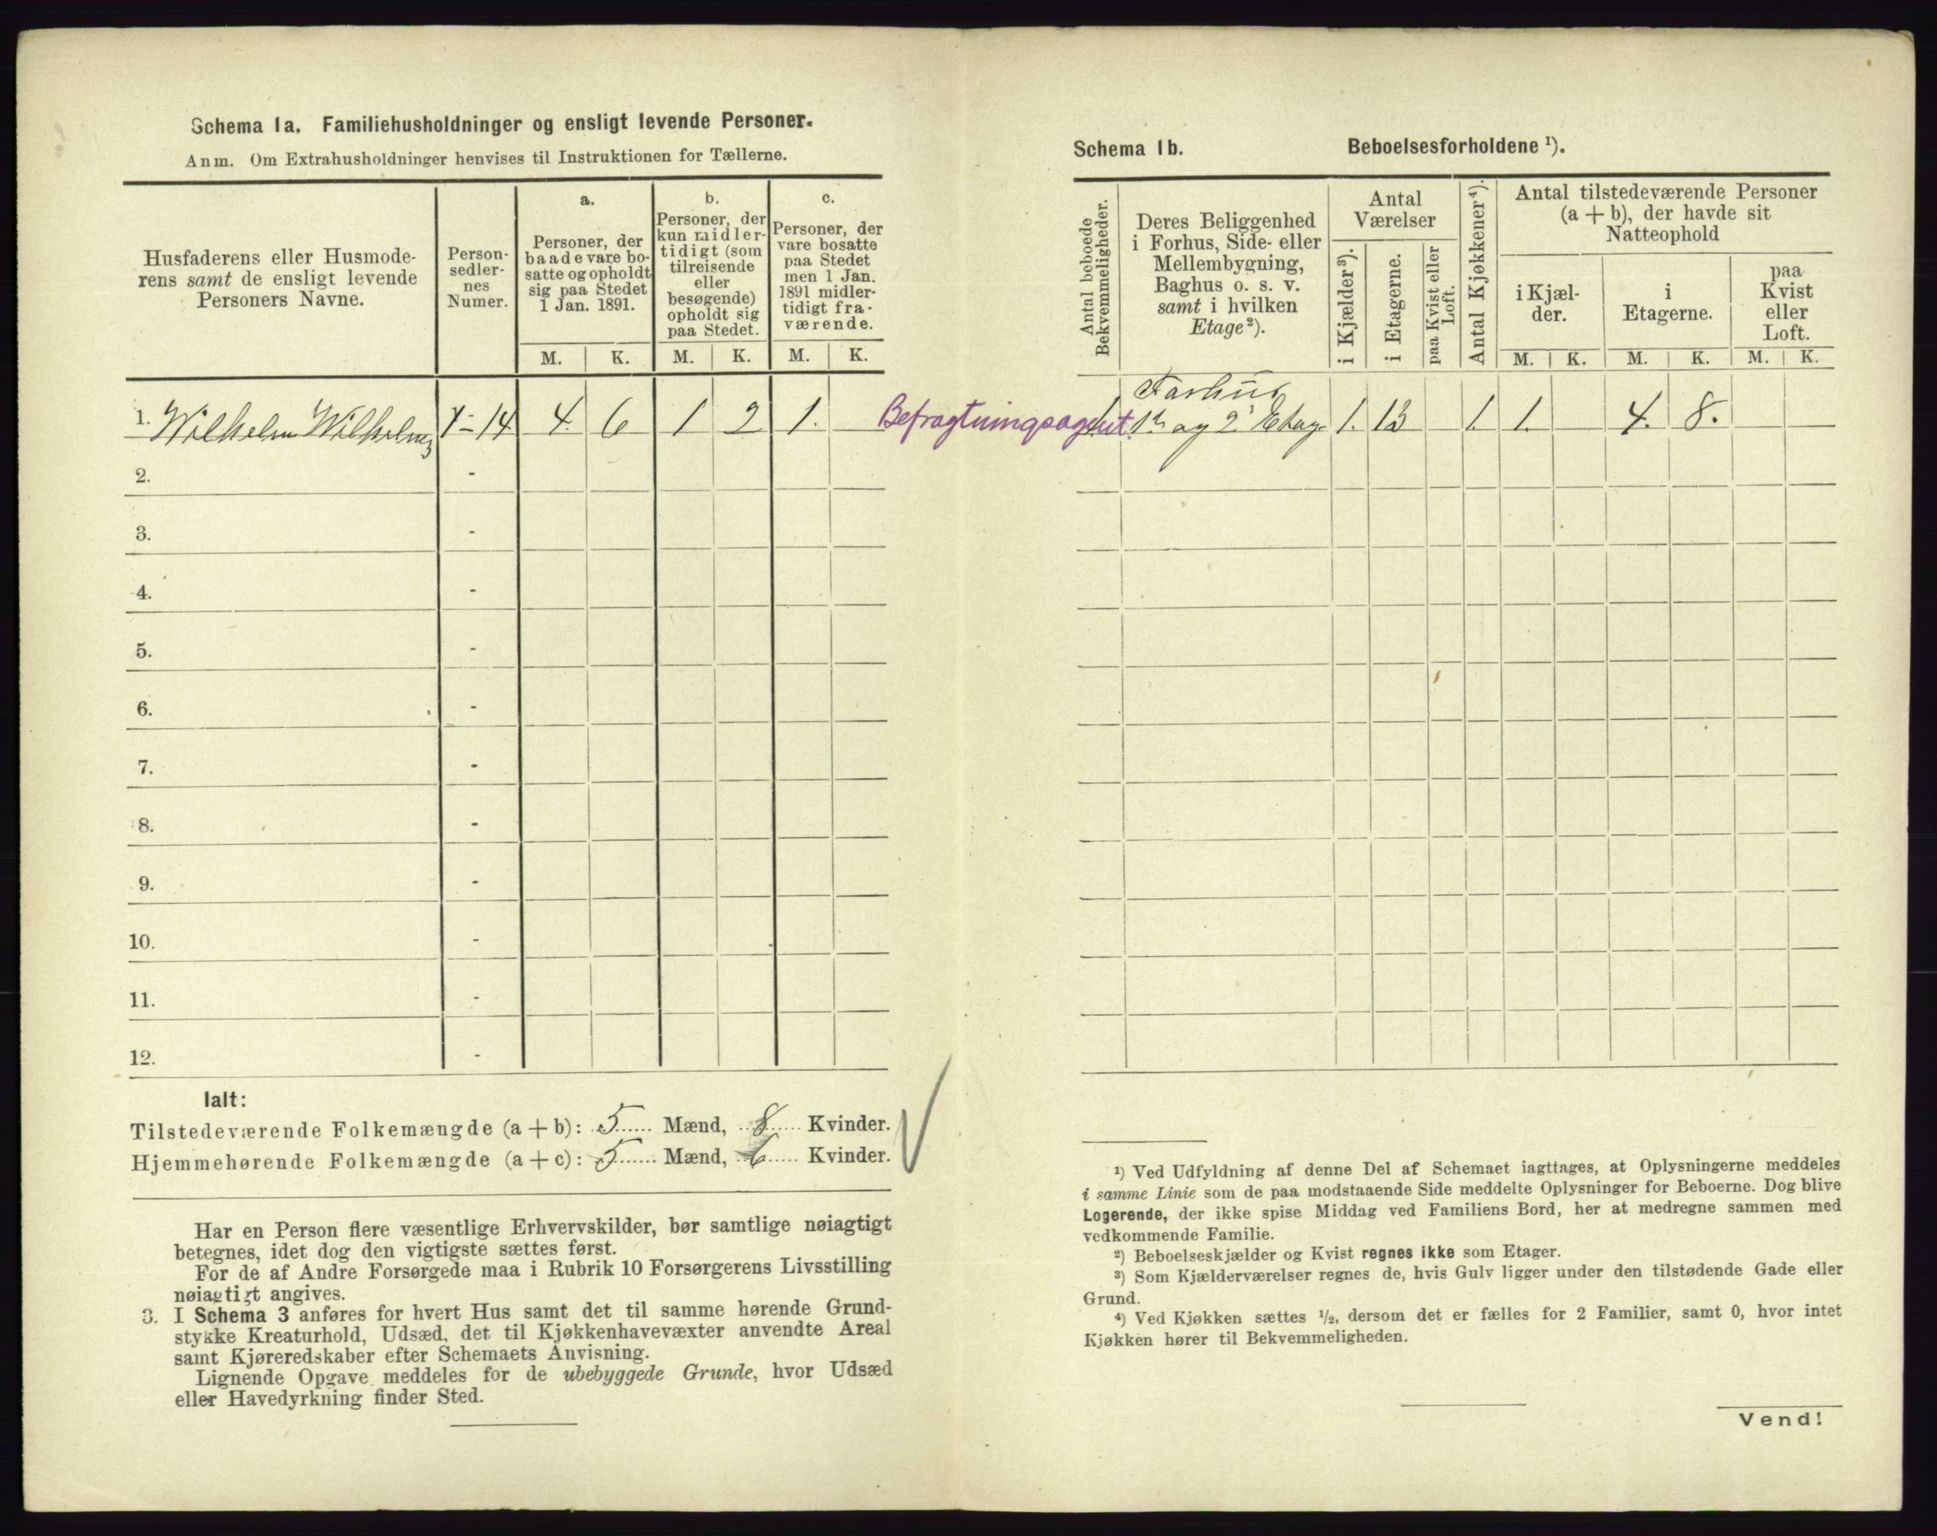 Schema 1a. Familiehusholdninger og ensligt levende Personer.
Anm. Om Extrahusholdninger henvises til Instruktionen for Tællerne.
Husfaderens eller Husmode-
rens samt de ensligt levende
Personers Navne.
Person-
sedler-
nes
Numer.
a.
Personer, der
baade vare bo-
satte og opholdt
sig paa Stedet
1 Jan. 1891.
b.
Personer, der
kun midler-
tidigt (som
tilreisende
eller
besøgende)
opholdt sig
paa Stedet.
c.
Personer, der
vare bosatte
paa Stedet
men 1 Jan.
1891 midler-
tidigt fra-
værende.
M. K. M. K. M. K.
1. Wilhelm Wilhelmsen 1-14 4 6 1 2 1. Befragtningsagent.
2. -
3. -
4. -
5. -
6. -
7. -
8. -
9. -
10. -
11. -
12. -
Ialt:
Tilstedeværende Folkemængde (a + b): 5 Mænd, 8 Kvinder.
Hjemmehørende Folkemængde (a + c): 5 Mænd, 6 Kvinder.
Har en Person flere væsentlige Erhvervskilder, bør samtlige nøiagtigt
betegnes, idet dog den vigtigste sættes først.
For de af Andre Forsørgede maa i Rubrik 10 Forsørgerens Livsstilling
nøiagtigt angives.
3. I Schema 3 anføres for hvert Hus samt det til samme hørende Grund-
stykke Kreaturhold, Udsæd, det til Kjøkkenhavevæxter anvendte Areal
samt Kjøreredskaber efter Schemaets Anvisning.
Lignende Opgave meddeles for de ubebyggede Grunde, hvor Udsæd
eller Havedyrkning finder Sted.
Schema 1b. Beboelsesforholdene ¹).
Antal beboede
Bekvemmeligheder.
Deres Beliggenhed
i Forhus, Side- eller
Mellembygning,
Baghus o. s. v.
samt i hvilken
Etage²).
Antal
Værelser
i Kjælder³).
i Etagerne.
paa Kvist eller
Loft.
Antal Kjøkkener⁴).
Antal tilstedeværende Personer
(a + b), der havde sit
Natteophold
i Kjæl-
der.
i
Etagerne.
paa
Kvist
eller
Loft.
M. K. M. K. M. K.
Forhus
1 1ste og 2 Etag. 1. 13 1. 1. 4. 8.
¹) Ved Udfyldning af denne Del af Schemaet iagttages, at Oplysningerne meddeles
i samme Linie som de paa modstaaende Side meddelte Oplysninger for Beboerne. Dog blive
Logerende, der ikke spise Middag ved Familiens Bord, her at medregne sammen med
vedkommende Familie.
²) Beboelseskjælder og Kvist regnes ikke som Etager.
³) Som Kjælderværelser regnes de, hvis Gulv ligger under den tilstødende Gade eller
Grund.
⁴) Ved Kjøkken sættes ½, dersom det er fælles for 2 Familier, samt 0, hvor intet
Kjøkken hører til Bekvemmeligheden.
Vend!